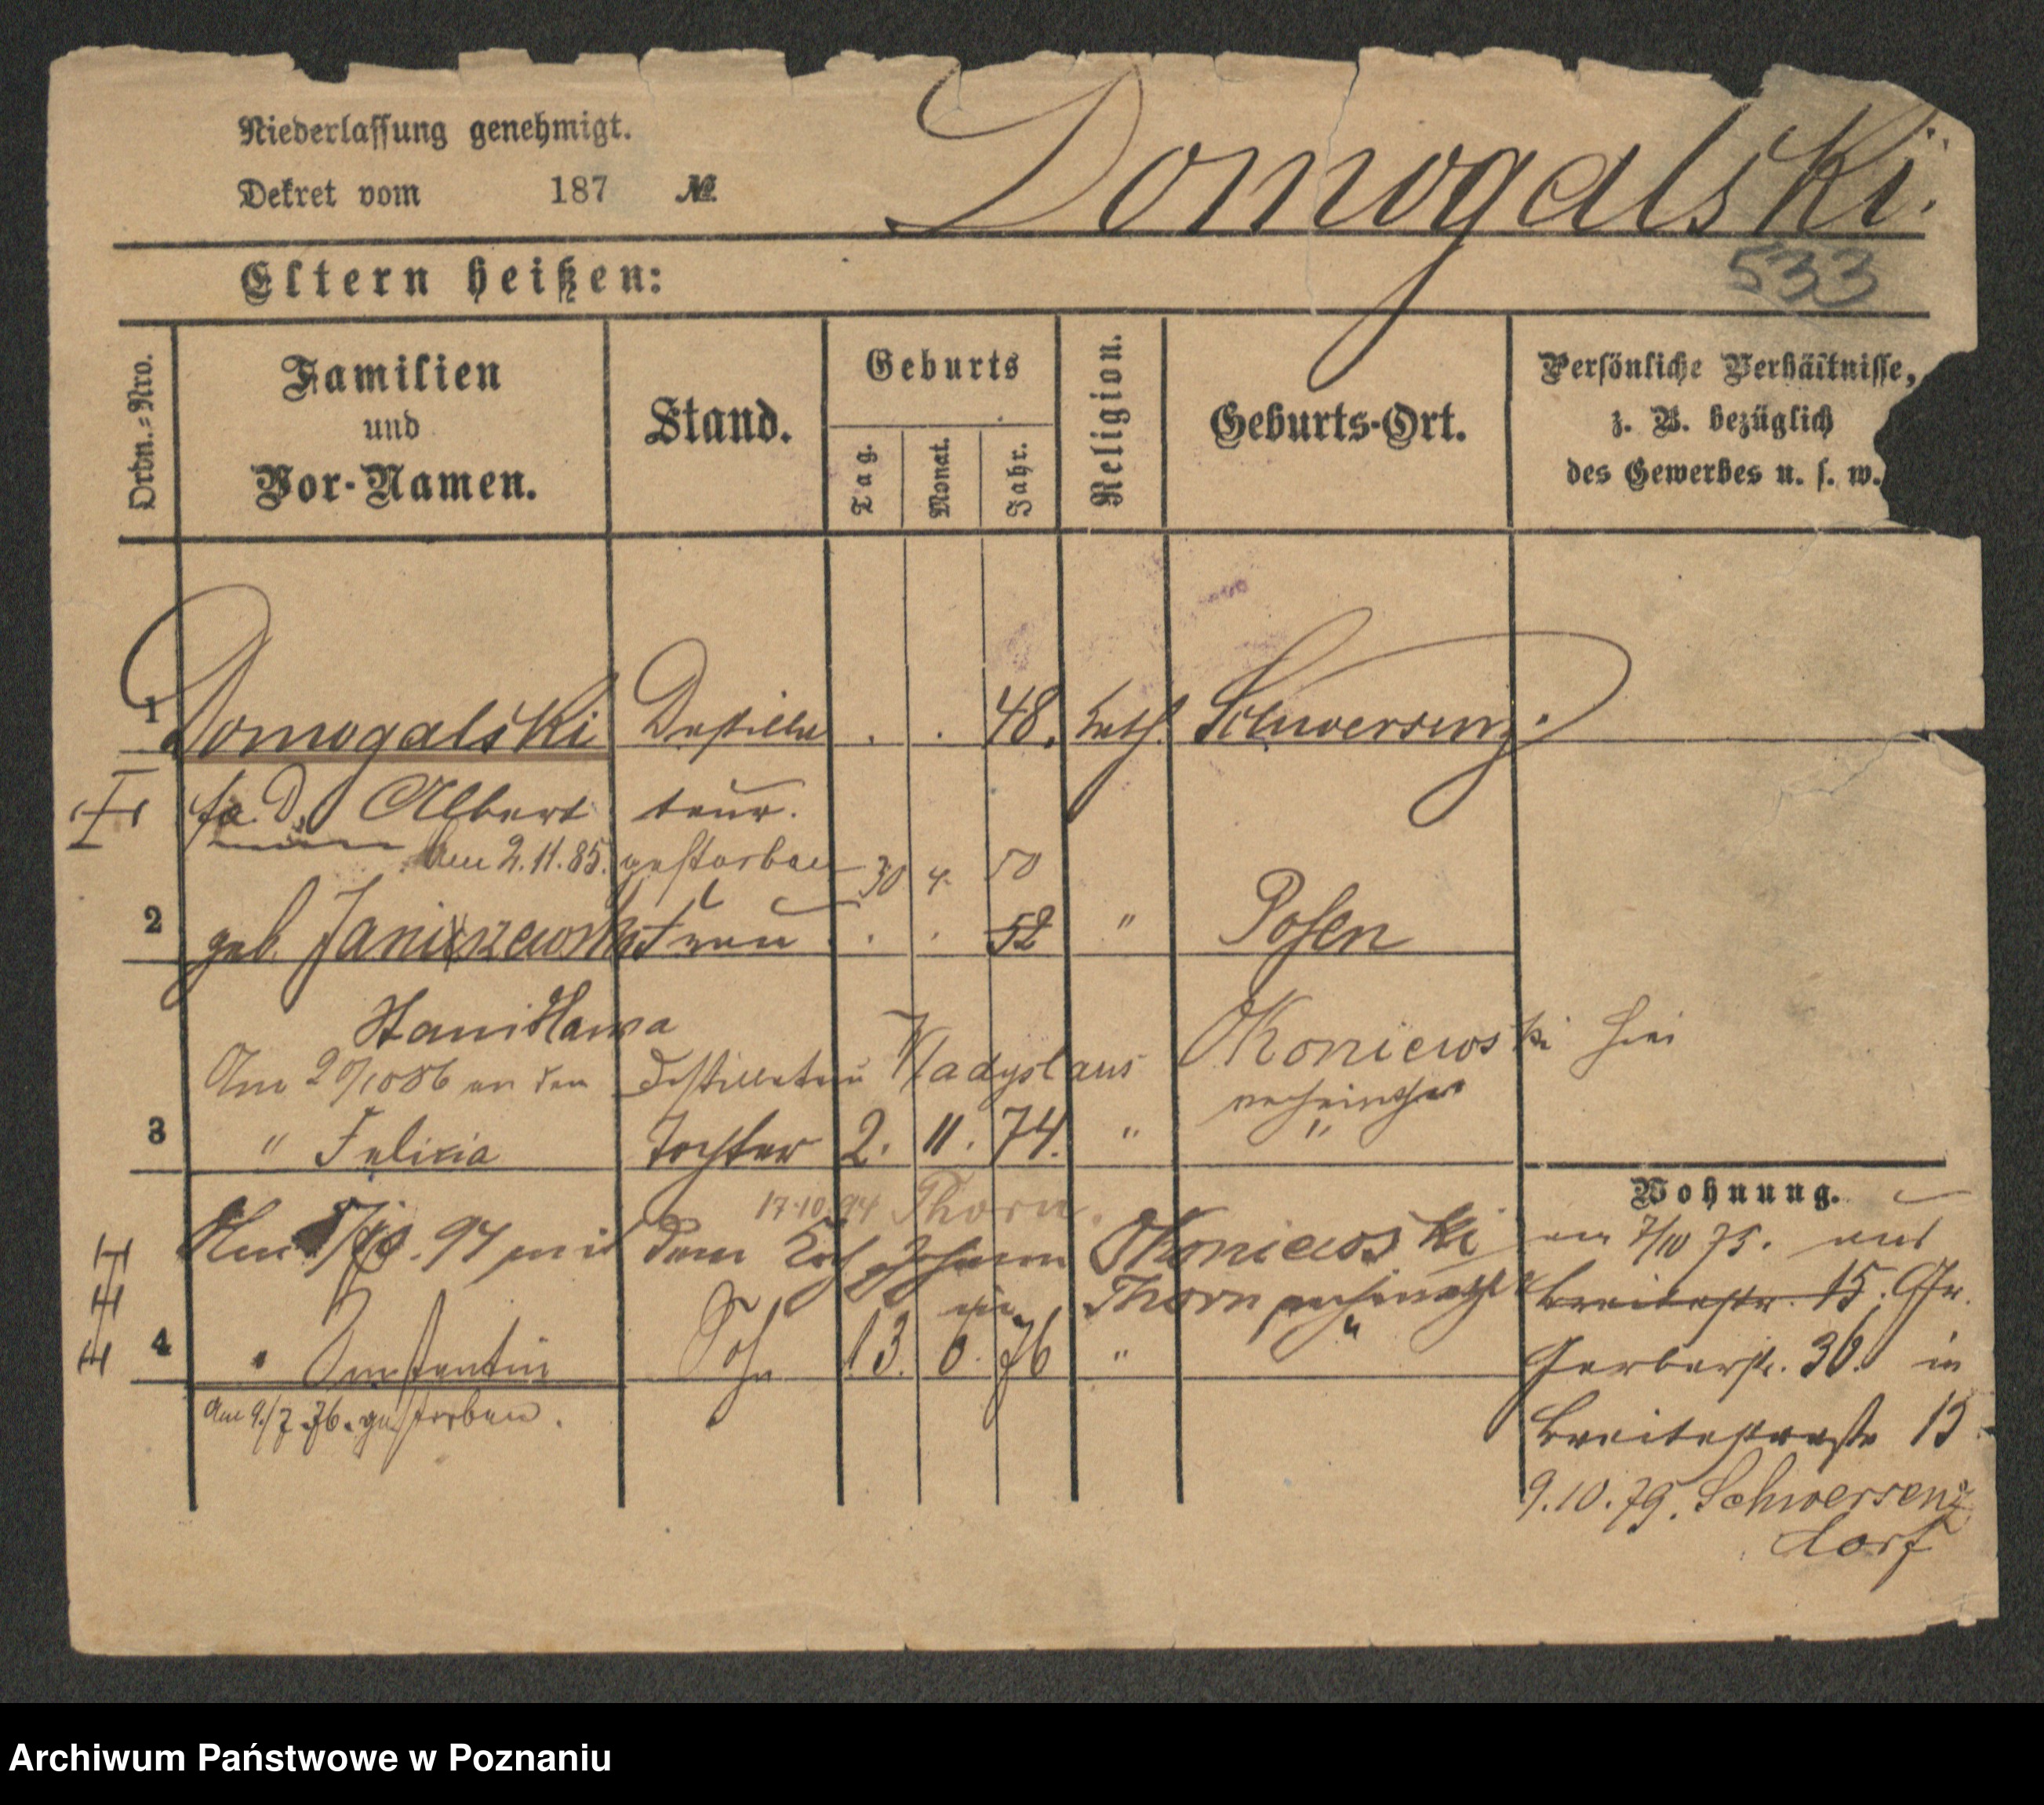 Niederlassung genehmigt.
Dekret vom 187 №
Domogalski.
Eltern heißen:
533
Ordn.-Nro.
Familien und Vor-Namen.
Stand.
Geburts
Tag.
Monat.
Jahr.
Religion.
Geburts-Ort.
Persönliche Verhältnisse,
z. B. bezüglich
des Gewerbes u. s. w.
1 Domogalski Destilla . . 48. kath. Schwersenz.
Albert teur.
Am 2.11.85. gestorben 30 4. 50
2 geb. Janiszewska Frau . . 52 " Posen
Stanislawa
Am 20/10 86 an den Destillateur Wladyslaus Okoniewski hier
3 " Felixia Tochter 2. 11. 74. " "
17.10.94 Thorn.
Am 94 mit dem Koch Johann Okoniewski
in Thorn
4 " Constantin Sohn 13. 6. 76 " "
Am 9./7.76. gestorben.
Wohnung.
am 7/10 75. aus
Breitestr. 15. Gr.
Gerberstr. 36. in
Breitestraße 15
9.10.79. Schwersenz
dorf
Archiwum Państwowe w Poznaniu